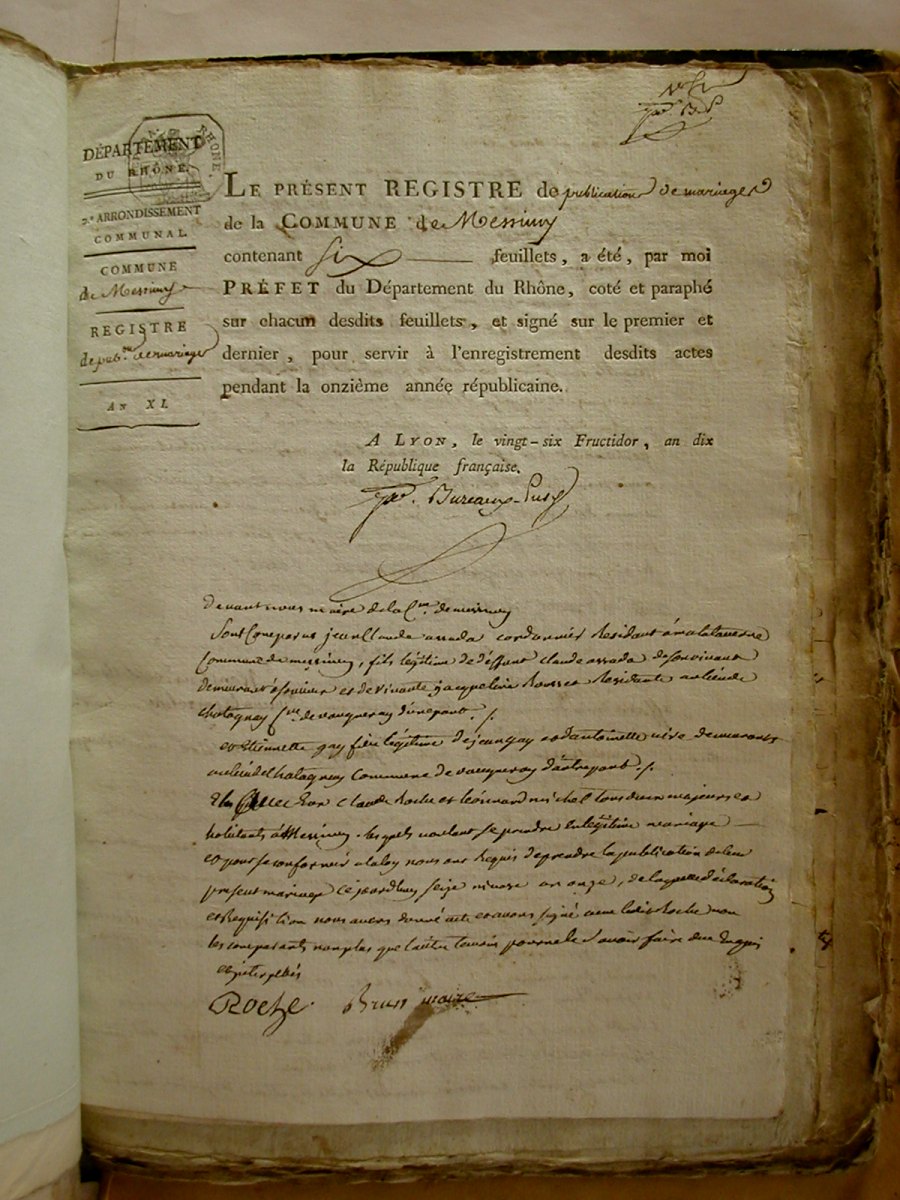 DÉPARTEMENT
DU RHÔNE.
2.e ARRONDISSEMENT
COMMUNAL.
COMMUNE
de Messimy
REGISTRE
de pub.on de mariages
AN XI.
RHÔNE.
LE PRÉSENT REGISTRE de publications de mariages
de la COMMUNE de Messimy
contenant six feuillets, a été, par moi
PRÉFET du Département du Rhône, coté et paraphé
sur chacun desdits feuillets, et signé sur le premier et
dernier, pour servir à l'enregistrement desdits actes
pendant la onzième année républicaine.
A LYON, le vingt-six Fructidor, an dix
la République française.
Bureaux-Pusy
devant nous maire de la Cne de messimy
Sont Comparus jean Claude assada cordonnier Residant à la
Commune de messimy, fils légitime de deffunt claude assada de son vivant
et de vivante jacqueline Residante au lieu de
chatagnay Cne de vaugneray d'une part ./.
et Etiennette gay fille légitime de jean gay et d'antoinette demeurants
au lieu de chatagnay Commune de vaugneray d'autre part ./.
claude Roche et léonard michel tous deux majeurs et
habitants à Messimy lesquels voulant se prendre en légitime mariage
et pour se conformer a la loy nous ont Requis de prendre la publication de leur
present mariage ce jourdhuy seize nivose an onze, de laquelle déclaration
et Requisition nous avons donné acte et avons signé avec ledit Roche non
les comparants non plus que l'autre temoin pour ne le savoir faire de ce Enquis
et interpellés
Roche Brun maire